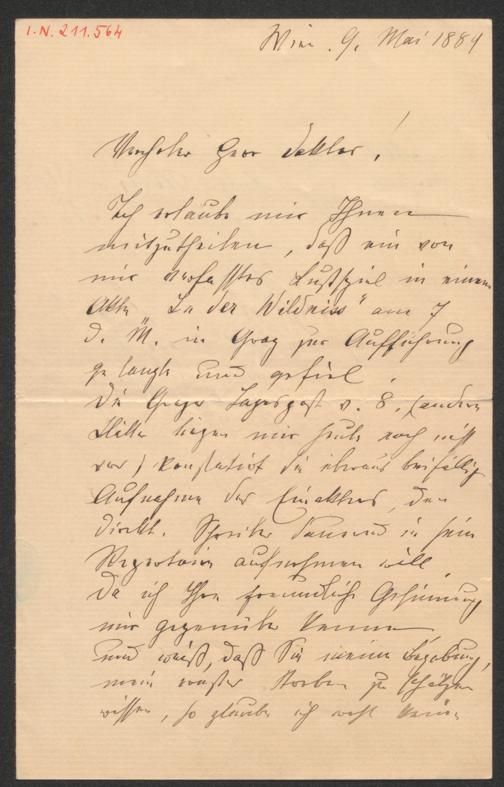 I.N. 211.564
Wien. 9. Mai 1884
Verehrter Herr Doktor!
Ich erlaube mir Ihnen
mitzutheilen, daß ein von
mir verfasstes Lustspiel in einem
Akte "In der Wildniss" am 7
d. M. in Graz zur Aufführung
gelangte und gefiel.
Die Grazer Tagespost v. 8. (andere
Blätter liegen mir heute noch nicht
vor) konstatirt die überaus beifällige
Aufnahme des Einakters, den
Direkt. dauernd in sein
Repertoire aufnehmen will.
Da ich Ihre freundliche Gesinnung
mir gegenüber kenne
und weiß, daß Sie meine Begabung,
mein ernstes Streben zu schätzen
wissen, so glaube ich wohl keine